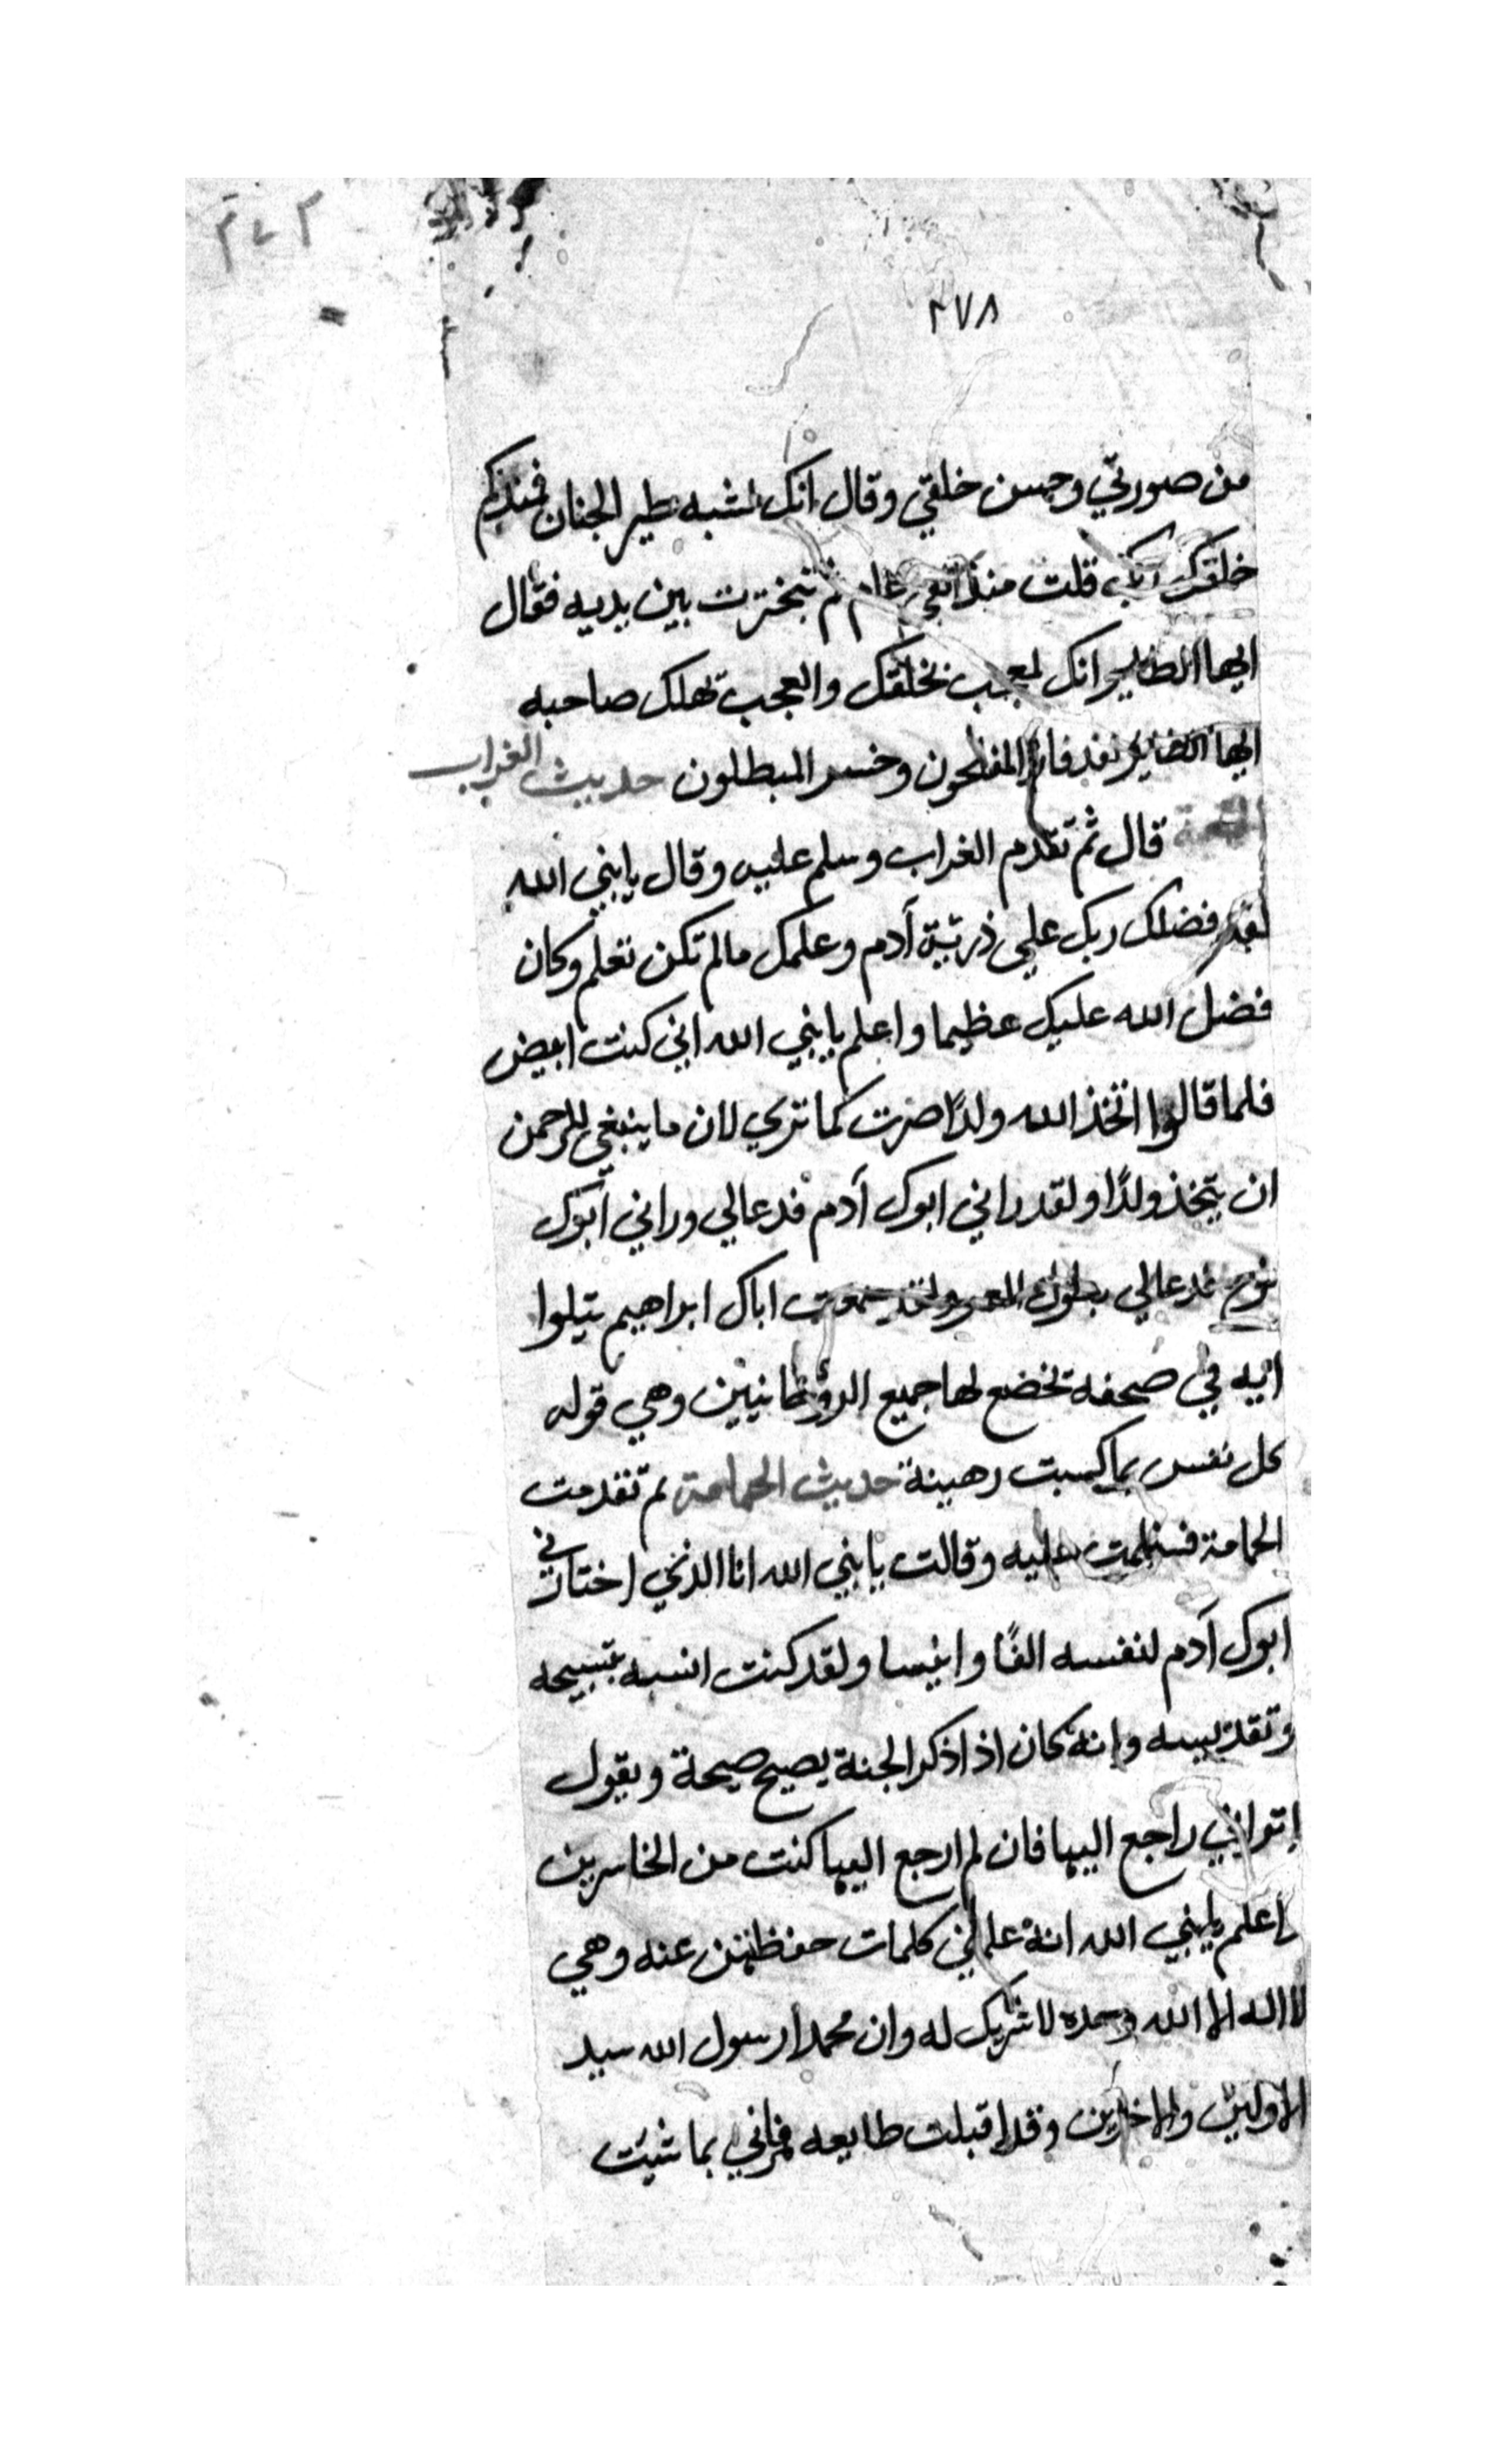 ٢٧٨
من صورتي وحسن خلقي وقال انك لشبه طير الجنان فمنذ كم
خلقك ربك قلت منذ الفي عام ثم تبخترت بين يديه فقال
ايها الطاير انك لمعجب بخلقك والعجب تهلك صاحبه
ايها الطاير لقد فاز المفلحون وخسر المبطلون حديث الغراب
قال ثم تقدم الغراب وسلم عليه وقال يا نبي الله
لقد فضلك ربك علي ذرية آدم وعلمك مالم تكن تعلم وكان
فضل الله عليك عظيما واعلم يا نبي الله اني كنت ابيض
فلما قالوا اتخذ الله ولدًا صرت كما تري لان ما ينبغي للرحمن
ان يتخذ ولدًا ولقد راني ابوك آدم فدعالي وراني ابوك
نوح فدعالي بطول العمر ولقد سمعت اباك ابراهيم يتلوا
ايه في صحفه تخضع لها جميع الروحانيين وهي قوله
كل نفس بما كسبت رهينة حديث الحمامة ثم تقدمت
الحمامة فسلمت عليه وقالت يا نبي الله انا الذي اختارني
ابوك آدم لنفسه الفًا وانيسا ولقد كنت انسه بتسبيحه
وتقديسه وانه كان اذا ذكر الجنة يصيح صيحة ويقول
اتراني راجع اليها فان لم ارجع اليها كنت من الخاسرين
واعلم يا نبي الله انه علمني كلمات حفظتهن عنه وهي
لا اله الا الله وحده لا شريك له وان محمدا رسول الله سيد
الاولين والاخرين وقد اقبلت طايعه فمرني بما شيت